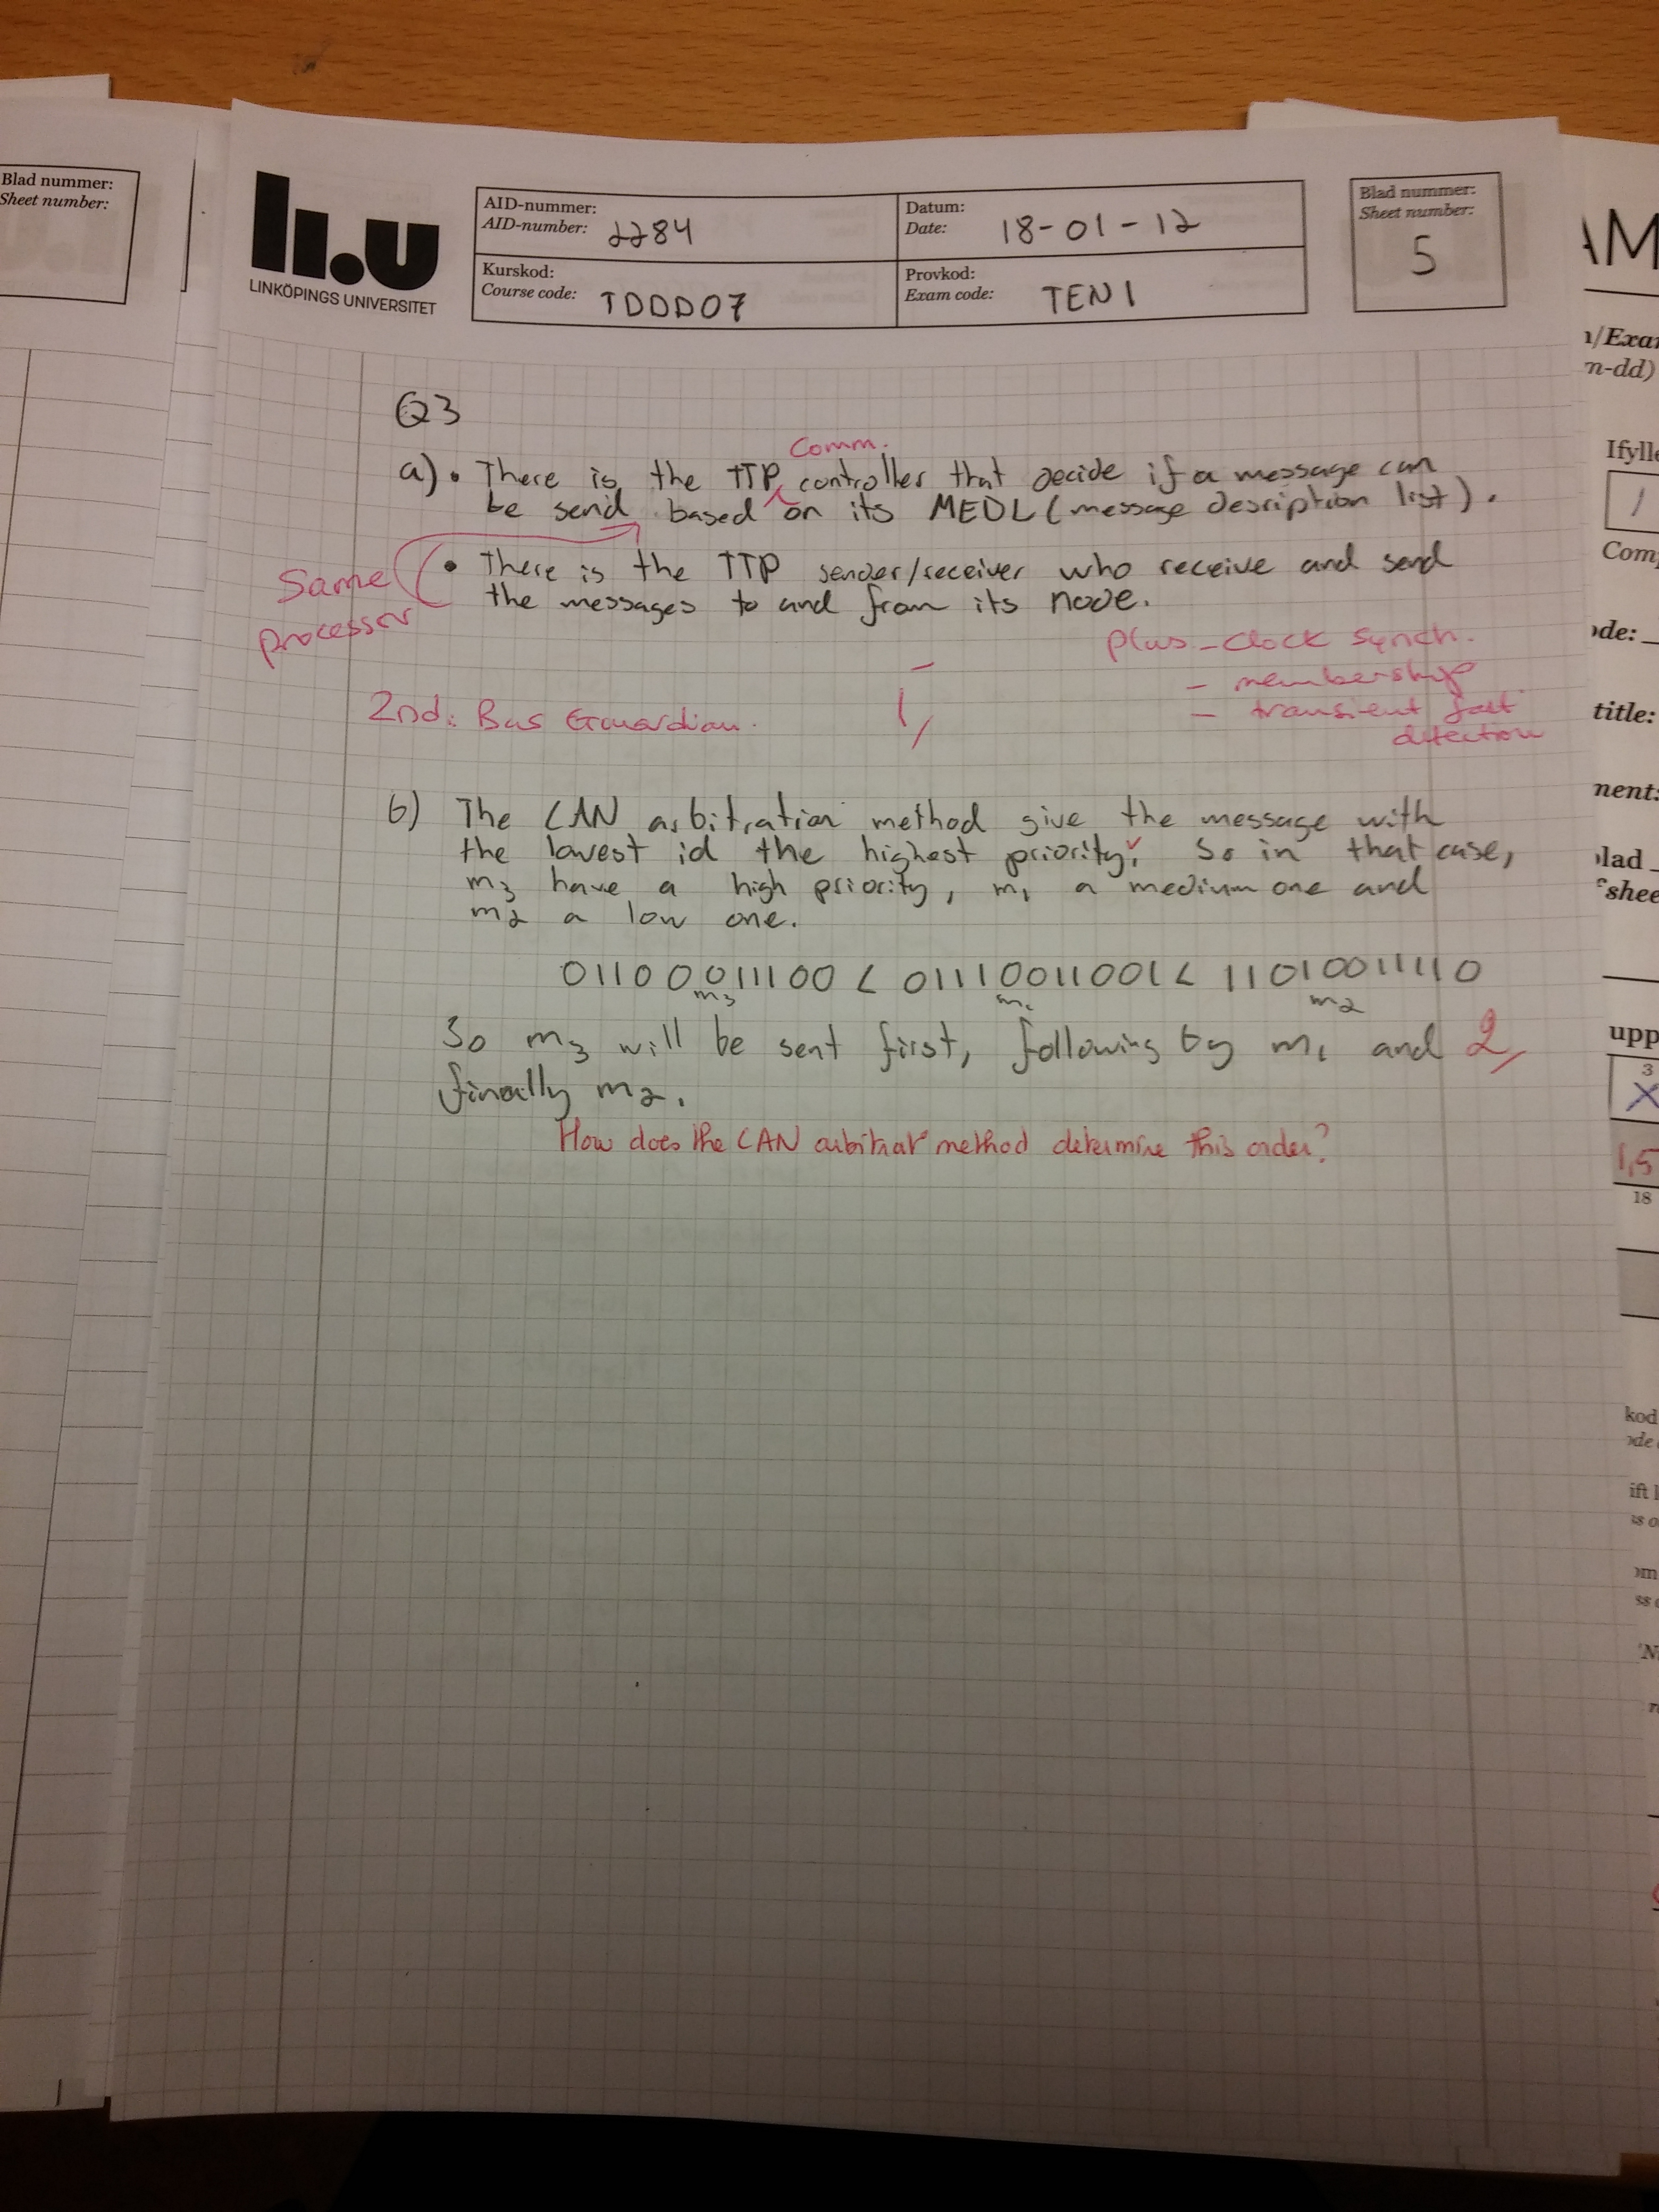 Blad nummer:
Sheet number:
li.u
LINKÖPINGS UNIVERSITET
AID-nummer:
AID-number: 2284
Datum:
Date: 18-01-12
Kurskod:
Course code: TDDD07
Provkod:
Exam code: TEN1
Blad nummer:
Sheet number:
5
Q3
Comm.
a) • There is the TTP controller that decide if a message can
be send based on its MEDL (message description list).
• There is the TTP sender/receiver who receive and send
the messages to and from its node.
Same
processor
plus - clock synch.
- membership
- transient fault
detection
2nd: Bus Guardian.
1,
b) The CAN arbitration method give the message with
the lowest id the highest priority. So in that case,
m3 have a high priority, m1 a medium one and
m2 a low one.
011000011100 < 011110011001 < 110100111110
m3 m1 m2
So m3 will be sent first, following by m1 and 2,
finally m2.
How does the CAN arbitrat° method determine this order?
AM
n-dd)
Ifylle
1
Com
title:
shee
upp
3
X
1,5
18
kod